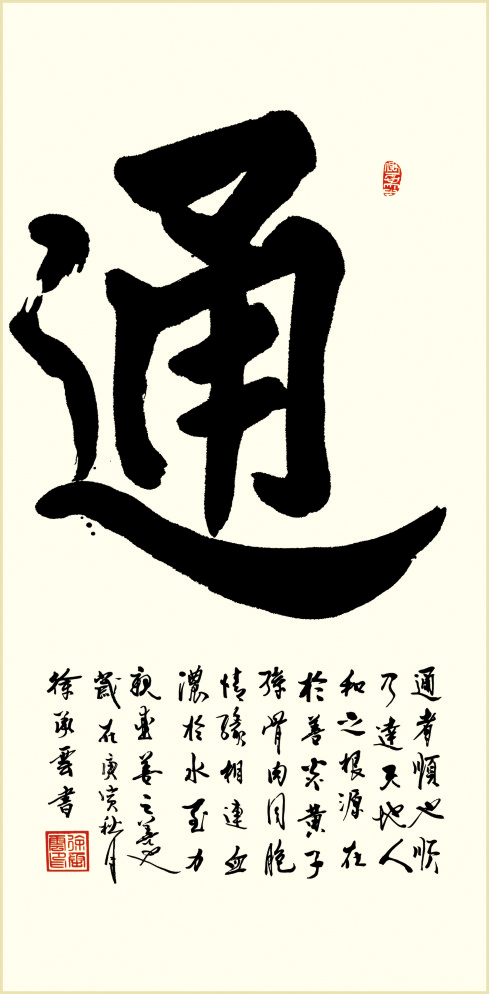 通
通者順也順
乃達天地人
和之根源在
於善炎黃子
孫骨肉同胞
情緣相連血
濃於水至
親善之善也
歲在庚寅秋月
徐承雲書